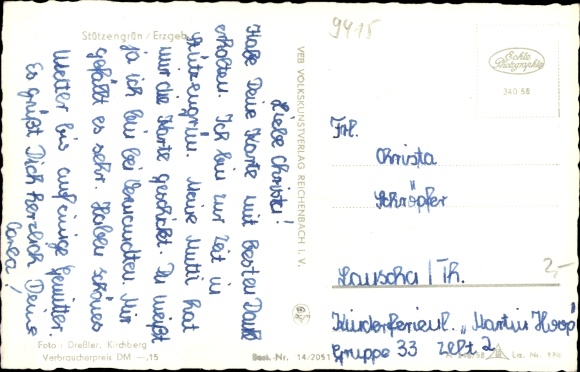 Stützengrün / Erzgeb.
Liebe Christa!
Habe Deine Karte mit besten Dank
erhalten. Ich bin zur Zeit in
Stützengrün. Meine Mutti hat
mir die Karte geschickt. Du weißt
ja ich bin bei Verwandten. Mir
gefällt es sehr. Haben schönes
Wetter bis auf einige Gewitter.
Es grüßt Dich herzlich Deine
Carla!
Foto: Dreßler, Kirchberg
Verbraucherpreis DM -,15
VEB VOLKSKUNSTVERLAG REICHENBACH i. V.
Best.-Nr. 14/2051
9415
Echte
Photographie
340 58
Frl.
Christa
Schröpfer
Lauscha / Th.
2,-
Kinderferienl. „Martin Hoop"
Gruppe 33 Zelt 2